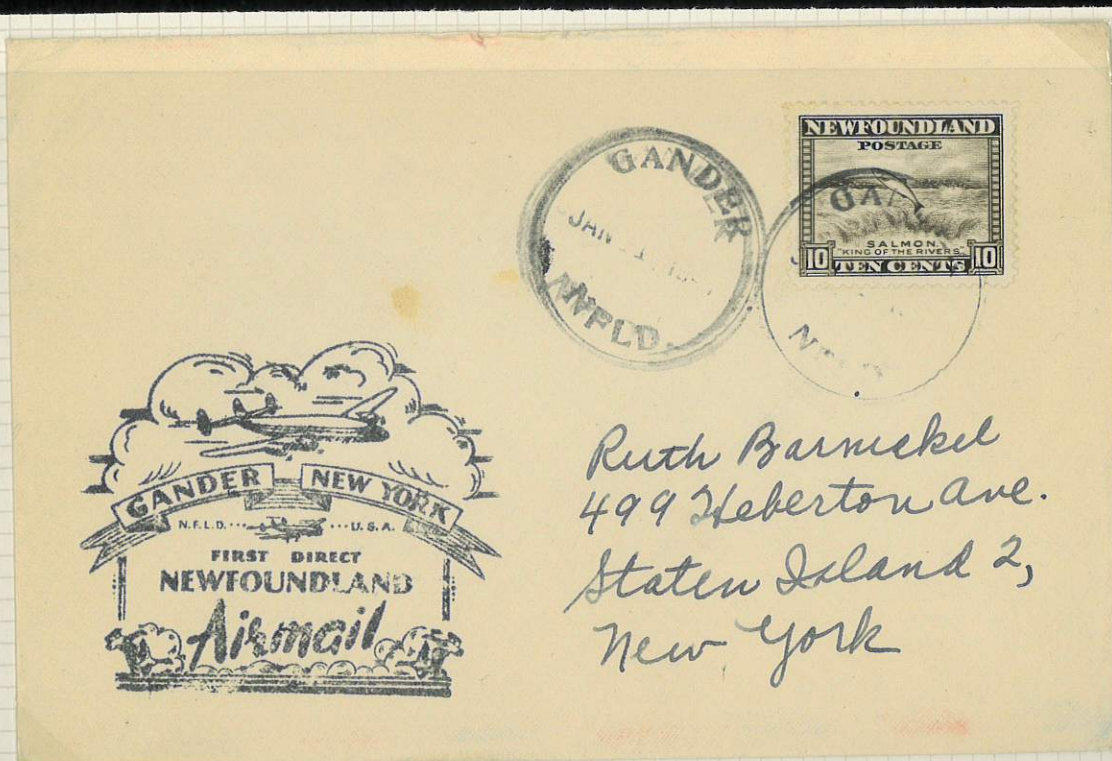 NEWFOUNDLAND
POSTAGE
SALMON
"KING OF THE RIVERS"
10 TEN CENTS 10
GANDER
JAN
NFLD.
GANDER NEW YORK
N.F.L.D. ... ... U.S.A.
FIRST DIRECT
NEWFOUNDLAND
Airmail
Ruth Barnickel
499 Heberton Ave.
Staten Island 2,
New York